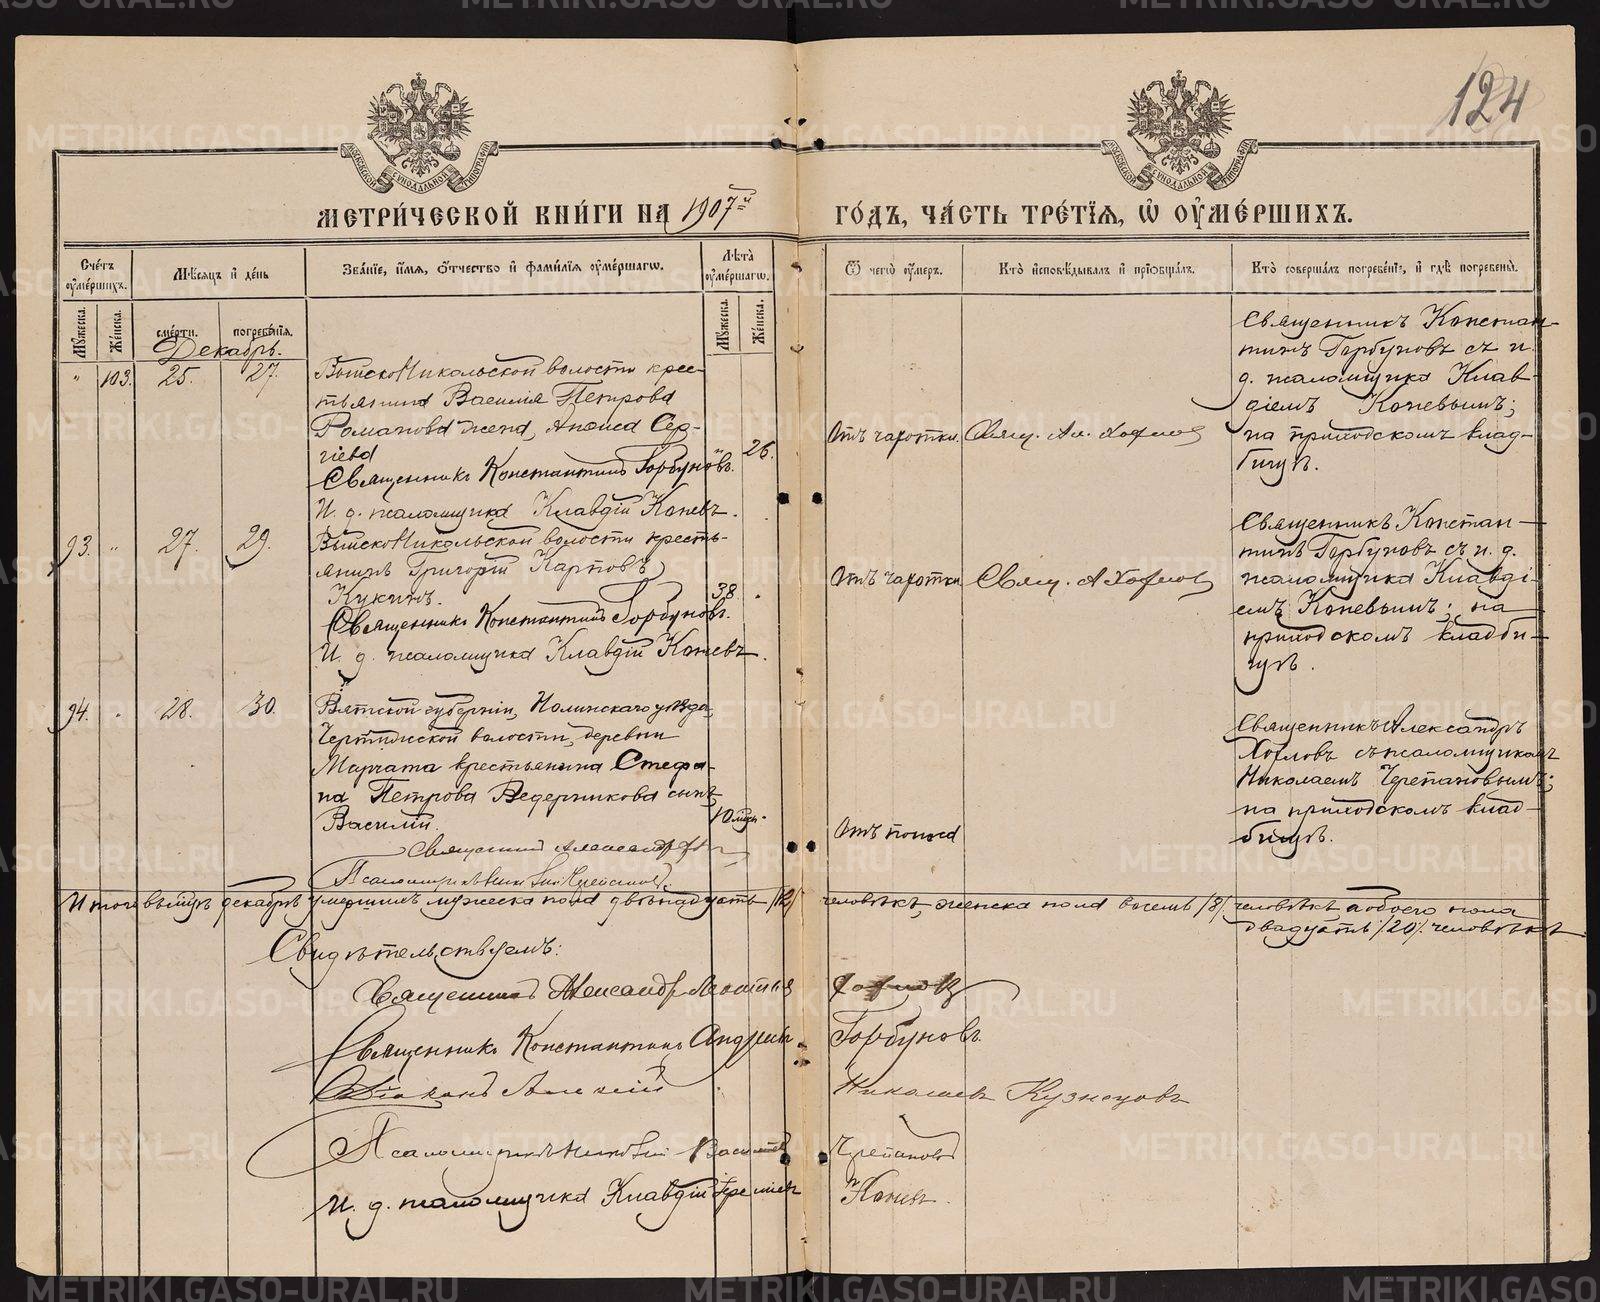 124
МЕТРИ́ЧЕСКОЙ КНИ́ГИ НА 1907й ГО́ДЪ, ЧА́СТЬ ТРЕ́ТЇѦ, Ѡ҆ ОУ҆МЕ́РШИХЪ.
Сче́тъ оу҆ме́ршихъ.
Мѣ́сѧцъ и҆ де́нь
Зва́нїе, и҆́мѧ, ѻ҆́тчество и҆ фами́лїѧ оу҆ме́ршагѡ.
Лѣ́та оу҆ме́ршагѡ.
Ѿ чегѡ̀ оу҆́меръ.
Кто̀ и҆сповѣ́дывалъ и҆ прїѡбща́лъ.
Кто̀ соверша́лъ погребе́нїе, и҆ гдѣ̀ погребены̀.
Мꙋ́жеска.
Же́нска.
сме́рти.
погребе́нїѧ.
Мꙋ́жеска.
Же́нска.
Декабрь.
" 103. 25. 27.
ВыйскоНикольской волости крес-
тьянина Василія Петрова
Романова жена, Анисія Сер-
гіева
26.
Священникъ Константинъ Горбуновъ.
И. д. псаломщика Клавдій Коневъ.
Отъ чахотки.
Свящ. Ал. Хохлов
Священникъ Констан-
тинъ Горбуновъ съ и.
д. псаломщика Клав-
діемъ Коневымъ;
на приходскомъ клад-
бищѣ.
93. " 27. 29.
ВыйскоНикольской волости кресть-
янинъ Григорій Карповъ
Кукинъ.
38.
Священникъ Константинъ Горбуновъ.
И. д. псаломщика Клавдій Коневъ.
Отъ чахотки
Свящ. А Хохлов
Священникъ Констан-
тинъ Горбуновъ съ и. д.
псаломщика Клавді-
емъ Коневымъ; на
приходскомъ кладби-
щѣ.
94. 28. 30.
Вятской губерніи, Нолинскаго уѣзда,
волости, деревни
крестьянина Стефа-
на Петрова Ведерникова сынъ
Василій.
Священникъ Александръ
Псаломщикъ Николай Черепановъ.
Отъ поноса
Священникъ Александръ
Хохловъ съ псаломщикомъ
Николаемъ Черепановымъ;
на приходскомъ клад-
бищѣ.
Итого въ мцѣ декабрѣ умершихъ мужеска пола двѣнадцать /12/ человѣкъ, женска пола восемь /8/ человѣкъ, а обоего пола
двадцать /20/ человѣкъ.
Свидѣтельствуемъ:
Священникъ Александръ Хохловъ
Священникъ Константинъ Андреевъ Горбуновъ.
Діаконъ Алексій Николаевъ Кузнецовъ
Псаломщикъ Николай Васильевъ Черепановъ
И. д. псаломщика Клавдій Іереміевъ Коневъ.
METRIKI.GASO-URAL.RU